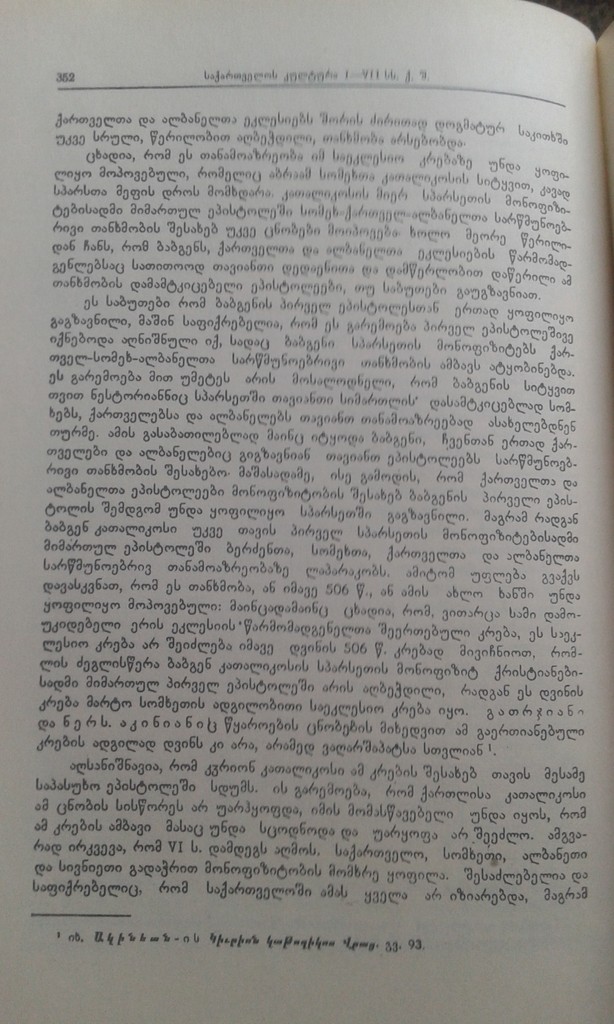 352
საქართველოს კულტურა I—VII სს. ქ. შ.
ქართველთა და ალბანელთა ეკლესიებს შორის ძირითად დოგმატურ საკითხში
უკვე სრული, წერილობით აღბეჭდილი, თანხმობა არსებობდა.
ცხადია, რომ ეს თანამოაზრეობა იმ საეკლესიო კრებაზე უნდა ყოფი-
ლიყო მოპოვებული, რომელიც აბრაამ სომეხთა კათალიკოსის სიტყვით, კავად
სპარსთა მეფის დროს მომხდარა. კათალიკოსის მიერ სპარსეთის მონოფიზი-
ტებისადმი მიმართულ ეპისტოლეში სომეხ-ქართველ-ალბანელთა სარწმუნოებ-
რივი თანხმობის შესახებ უკვე ცნობები მოიპოვება ხოლო მეორე წერილი-
დან ჩანს, რომ ბაბგენს, ქართველთა და ალბანელთა ეკლესიების წარმომად-
გენლებსაც სათითოოდ თავიანთი დედაენითა და დამწერლობით დაწერილი ამ
თანხმობის დამამტკიცებელი ეპისტოლეები, თუ საბუთები გაუგზავნიათ.
ეს საბუთები რომ ბაბგენის პირველ ეპისტოლესთან ერთად ყოფილიყო
გაგზავნილი, მაშინ საფიქრებელია, რომ ეს გარემოება პირველ ეპისტოლეშივე
იქნებოდა აღნიშნული იქ, სადაც ბაბგენი სპარსეთის მონოფიზიტებს ქარ-
თველ-სომეხ-ალბანელთა სარწმუნოებრივი თანხმობის ამბავს ატყობინებდა.
ეს გარემოება მით უმეტეს არის მოსალოდნელი, რომ ბაბგენის სიტყვით
თვით ნესტორიანნიც სპარსეთში თავიანთი სიმართლის დასამტკიცებლად სომ-
ხებს, ქართველებსა და ალბანელებს თავიანთ თანამოაზრეებად ასახელებდნენ
თურმე. ამის გასაბათილებლად მაინც იტყოდა ბაბგენი, ჩვენთან ერთად ქარ-
თველები და ალბანელებიც გიგზავნიან თავიანთ ეპისტოლეებს სარწმუნოებ-
რივი თანხმობის შესახებო. მაშასადამე, ისე გამოდის, რომ ქართველთა და
ალბანელთა ეპისტოლეები მონოფიზიტობის შესახებ ბაბგენის პირველი ეპის-
ტოლის შემდგომ უნდა ყოფილიყო სპარსეთში გაგზავნილი. მაგრამ რადგან
ბაბგენ კათალიკოსი უკვე თავის პირველ სპარსეთის მონოფიზიტებისადმი
მიმართულ ეპისტოლეში ბერძენთა, სომეხთა, ქართველთა და ალბანელთა
სარწმუნოებრივ თანამოაზრეობაზე ლაპარაკობს. ამიტომ უფლება გვაქვს
დავასკვნათ, რომ ეს თანხმობა, ან იმავე 506 წ., ან ამის ახლო ხანში უნდა
ყოფილიყო მოპოვებული: მაინცადამაინც ცხადია, რომ, ვითარცა სამი დამო-
უკიდებელი ერის ეკლესიის წარმომადგენელთა შეერთებული კრება, ეს საეკ-
ლესიო კრება არ შეიძლება იმავე დვინის 506 წ. კრებად მივიჩნიოთ, რომ-
ლის ძეგლისწერა ბაბგენ კათალიკოსის სპარსეთის მონოფიზიტ ქრისტიანები-
სადმი მიმართულ პირველ ეპისტოლეში არის აღბეჭდილი, რადგან ეს დვინის
კრება მარტო სომხეთის ადგილობითი საეკლესიო კრება იყო. გათრჯიანი
და ნერს. აკინიანიც წყაროების ცნობების მიხედვით ამ გაერთიანებული
კრების ადგილად დვინს კი არა, არამედ ვაღარშაპატსა სთვლიან ¹.
აღსანიშნავია, რომ კჳრიონ კათალიკოსი ამ კრების შესახებ თავის მესამე
საპასუხო ეპისტოლეში სდუმს. ის გარემოება, რომ ქართლისა კათალიკოსი
ამ ცნობის სისწორეს არ უარჰყოფდა, იმის მომასწავებელი უნდა იყოს, რომ
ამ კრების ამბავი მასაც უნდა სცოდნოდა და უარყოფა არ შეეძლო. ამგვა-
რად ირკვევა, რომ VI ს. დამდეგს აღმოს. საქართველო, სომხეთი, ალბანეთი
და სივნიეთი გადაჭრით მონოფიზიტობის მომხრე ყოფილა. შესაძლებელია და
საფიქრებელიც, რომ საქართველოში ამას ყველა არ იზიარებდა, მაგრამ
¹ იხ. Ակինեան-ის Կիւրիոն կաթողիկոս Վրաց. გვ. 93.